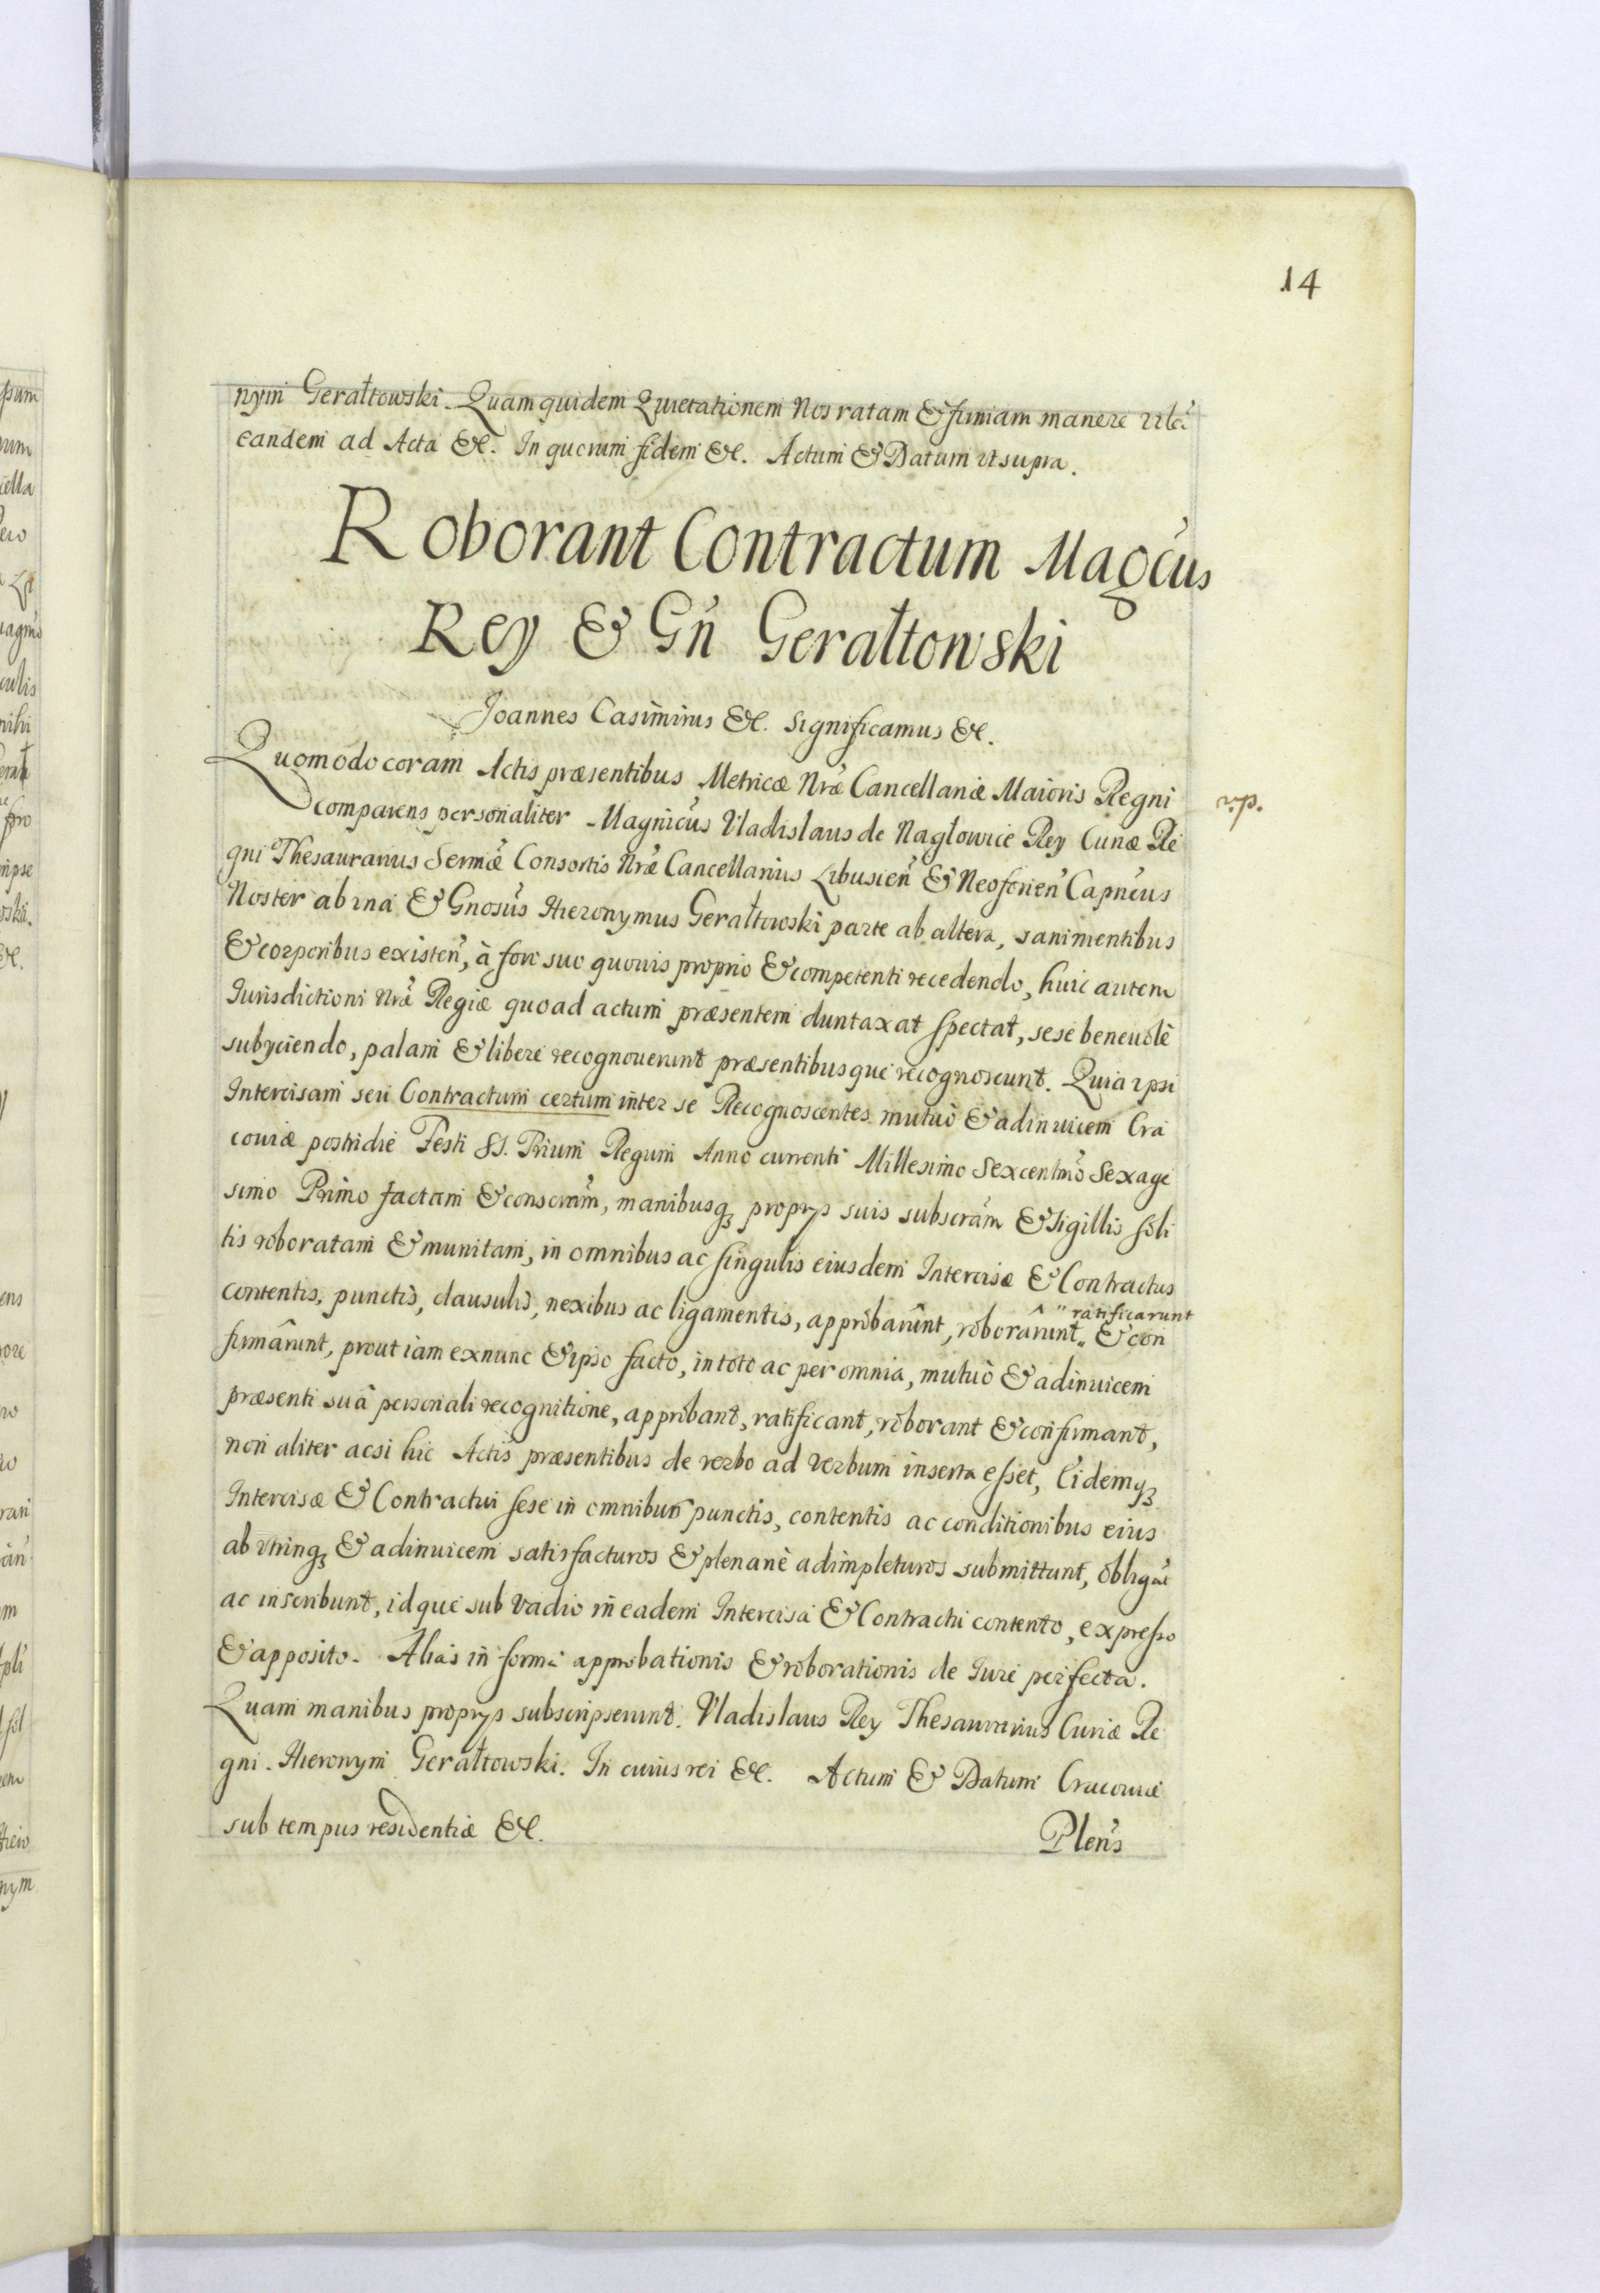 14
nym Gerałtowski. Quam quidem Quietationem Nos ratam & firmam manere
eandem ad Acta &c. In quorum fidem &c. Actum & Datum ut supra.
Roborant Contractum Magcus
Rey & Gn̄ Gerałtowski
Joannes Casimirus &c. Significamus &c.
Quomodo coram Actis præsentibus Metricæ Nræ Cancellariæ Maioris Regni
comparens personaliter Magnicus Vladislaus de Nagłowice Rey Curiæ Re
gni Thesaurarius Sermæ Consortis Nræ Cancellarius Libusien̄ & Neoforien̄ Capneus
Noster ab una & Gnosus Hieronymus Gerałtowski parte ab altera, sani mentibus
& corporibus existen̄, à foro suo quovis proprio & competenti recedendo, huic autem
Jurisdictioni Nræ Regiæ quoad actum præsentem duntaxat spectat, sese beneuolè
subyciendo, palam & liberè recognouerunt præsentibusque recognoscunt. Quia ipsi
Intercisam seu Contractum certum inter se Recognoscentes mutuò & adinuicem Cra
couiæ postridie Festi SS. Trium Regum Anno currenti Millesimo Sexcentmo Sexage
simo Primo factam & conscram, manibusqꝫ proprys suis subscram & sigillis soli
tis roboratam & munitam, in omnibus ac singulis eiusdem Intercisæ & Contractus
contentis, punctis, clausulis, nexibus ac ligamentis, approbarûnt, roborârunt " ratificarunt " & con
firmârunt, prout iam exnunc & ipso facto, in toto ac per omnia, mutuò & adinuicem
præsenti suâ personali recognitione, approbant, ratificant, roborant & confirmant,
non aliter acsi hic Actis præsentibus de verbo ad verbum inserta esset, Eidemqꝫ
Intercisæ & Contractui sese in omnibus punctis, contentis ac conditionibus eius
ab utrinqꝫ & adinuicem satisfacturos & plenariè adimpleturos submittunt, obligāt
ac inscribunt, idque sub vadio in eadem Intercisa & Contractu contento, expresso
& apposito. Alias in forma approbationis & roborationis de Jure perfecta.
Quam manibus proprys subscripserunt. Vladislaus Rey Thesaurarius Curiæ Re
gni. Hieronym Gerałtowski. In cuius rei &c. Actum & Datum Cracouiæ
sub tempus residentiæ &c.
Plen̄s